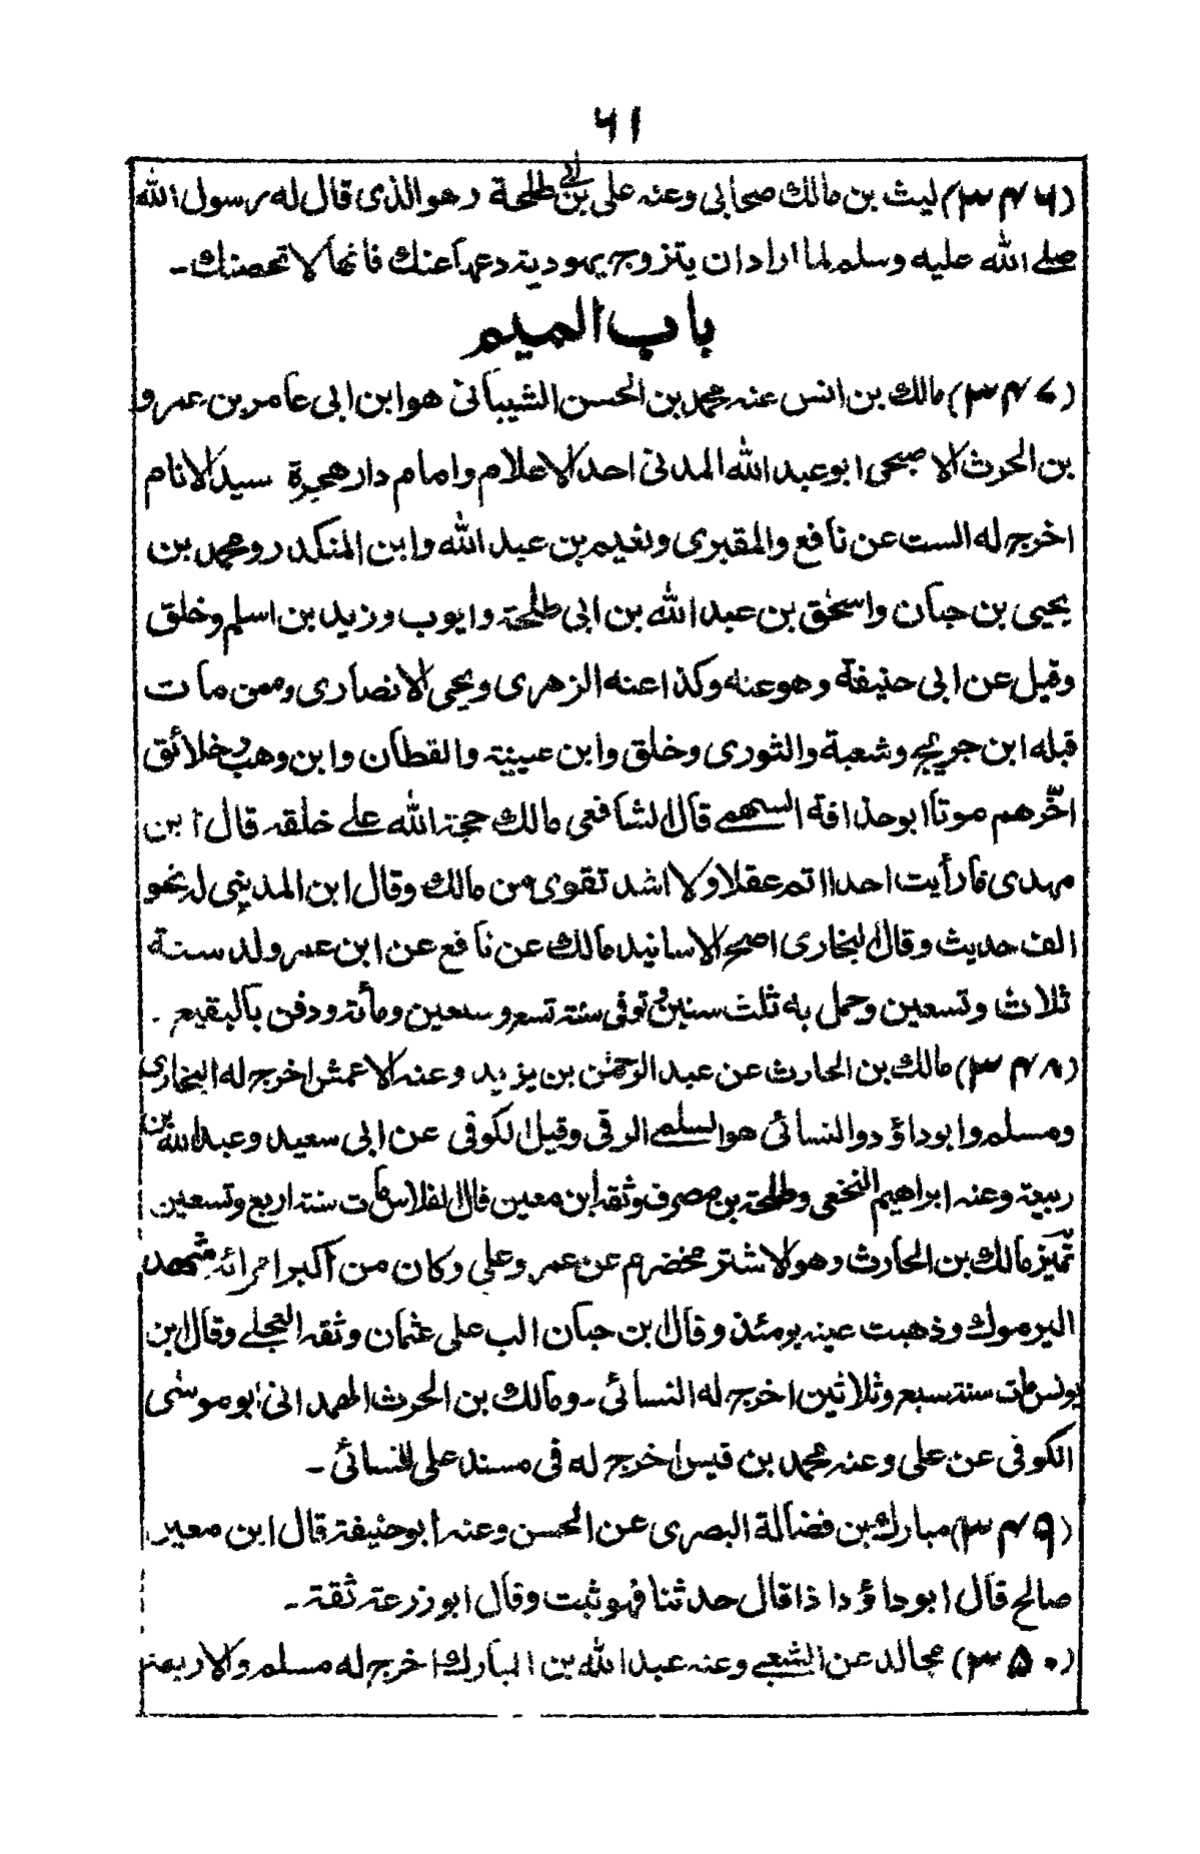 ٦١
(٣٤٦) ليث بن مالك صحابى وعنه على بن ابى طلحة وهو الذى قال له رسول الله
صلے الله عليه وسلم لما اراد ان يتزوج يهودية دعها عنك فانها لا تحصنك۔
باب الميم
(٣٤٧) مالك بن انس عنه محمد بن الحسن الشيبانى هو ابن ابى عامر بن عمرو
بن الحرث الاصبحى ابو عبد الله المدنى احد الاعلام وامام دار هجرة سيد الانام
اخرج له الست عن نافع والمقبرى ونعيم بن عبد الله وابن المنكدر ومحمد بن
يحيى بن حبان واسحٰق بن عبد الله بن ابى طلحة وايوب وزيد بن اسلم وخلق
وقيل عن ابى حنيفة وهو عنه وكذا عنه الزهرى ويحيى الانصارى وممن مات
قبله ابن جريج وشعبة والثورى وخلق وابن عيينة والقطان وابن وهب وخلائق
اخّرهم موتا ابو حذافة السهمے قال الشافعى مالك حجة الله علے خلقه قال ابن
مهدى مارأيت احدا اتم عقلا ولا اشد تقوى من مالك وقال ابن المدينى له نحو
الف حديث وقال البخارى اصح الاسانيد مالك عن نافع عن ابن عمر ولد سنة
ثلاث وتسعين وحمل به ثلث سنين وتوفى سنة تسع وسبعين ومأئة ودفن بالبقيع ۔
(٣٤٨) مالك بن الحارث عن عبد الرحمٰن بن يزيد وعنه الاعمش اخرج له البخارى
ومسلم وابو داؤد والنسائى هو السلمے الرقى وقيل الكوفى عن ابى سعيد وعبد الله بن
ربيعة وعنه ابراهيم النخعى وطلحة بن مصرف وثقه ابن معين قال الفلاس مات سنة اربع وتسعين
تميّز مالك بن الحارث وهو الاشتر مخضرم عن عمر وعلى وكان من اكبر امرائه شهد
اليرموك وذهبت عينه يومئذ وقال بن حبان الب على عثمان وثقه العجلے وقال ابن
يونس مات سنة سبع وثلاثين اخرج له النسائى۔ ومالك بن الحرث الهمدانى ابو موسٰى
الكوفى عن على وعنه محمد بن قيس اخرج له فى مسند على للنسائى ۔
(٣٤٩) مبارك بن فضالة البصرى عن الحسن وعنه ابو حنيفة قال ابن معين
صالح قال ابو داؤد اذا قال حدثنا فهو ثبت وقال ابو زرعة ثقة ۔
(٣٥٠) مجالد عن الشعبے وعنه عبد الله بن المبارك اخرج له مسلم والاربعة